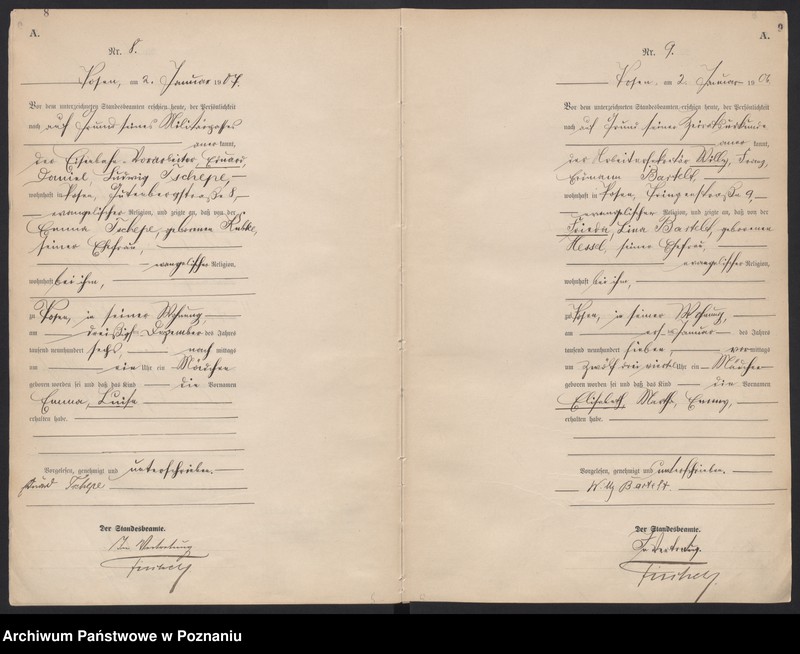 8
A.
Nr. 8.
Posen, am 2. Januar 1907.
Vor dem unterzeichneten Standesbeamten erschien heute, der Persönlichkeit
nach auf Grund seines Militärpasses
anerkannt,
der Eisenbahn-Vorarbeiter
Daniel, Ludwig Tschepe,
wohnhaft in Posen, Gutenbergstraße 8,
evangelischer Religion, und zeigte an, daß von der
Emma Tschepe, geborenen
seiner Ehefrau,
evangelischer Religion,
wohnhaft bei ihm,
zu Posen, in seiner Wohnung,
am Dezember des Jahres
tausend neunhundert sechs, nachmittags
um ein Uhr ein Mädchen
geboren worden sei und daß das Kind die Vornamen
Emma, Luise
erhalten habe.
Vorgelesen, genehmigt und unterschrieben.
Tschepe
Der Standesbeamte.
In Vertretung
9
A.
Nr. 9.
Posen, am 2. Januar 190
Vor dem unterzeichneten Standesbeamten erschien heute, der Persönlichkeit
nach auf Grund seiner Heiratsurkunde
anerkannt,
der Arbeitersekretär Willy, Franz,
Hermann Bartelt,
wohnhaft in Posen, 9,
evangelischer Religion, und zeigte an, daß von der
Frieda, Lina Bartelt, geborenen
seiner Ehefrau,
evangelischer Religion,
wohnhaft bei ihm,
zu Posen, in seiner Wohnung,
am Januar des Jahres
tausend neunhundert sieben, vormittags
um zwölf drei viertel Uhr ein Mädchen
geboren worden sei und daß das Kind die Vornamen
Elisabeth, Martha, Emmy,
erhalten habe.
Vorgelesen, genehmigt und unterschrieben.
Willy Bartelt
Der Standesbeamte.
In Vertretung.
Archiwum Państwowe w Poznaniu